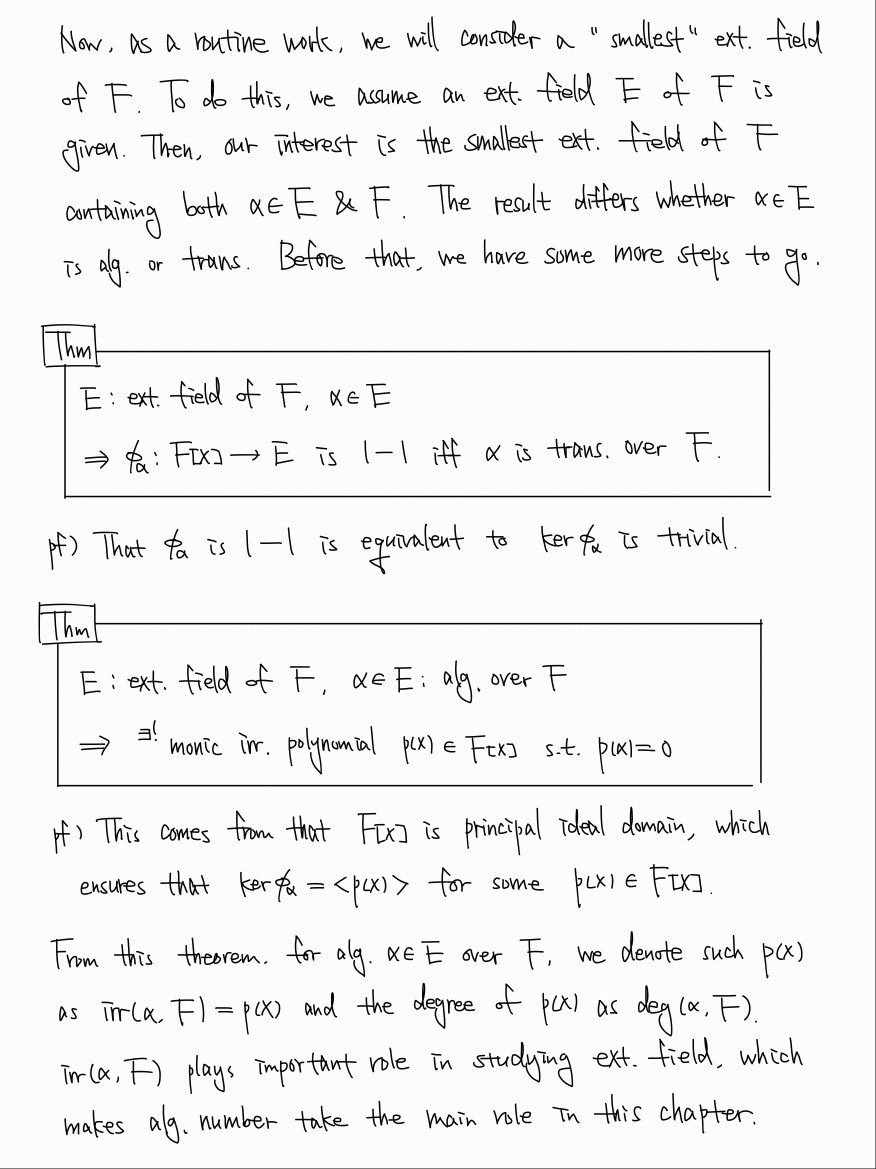 Now, as a routine work, we will consider a "smallest" ext. field
of F. To do this, we assume an ext. field E of F is
given. Then, our interest is the smallest ext. field of F
containing both α∈E & F. The result differs whether α∈E
is alg. or trans. Before that, we have some more steps to go.
Thm
E : ext. field of F, α∈E
⇒ ϕα : F[x] → E is 1-1 iff α is trans. over F.
pf) That ϕα is 1-1 is equivalent to ker ϕα is trivial.
Thm
E : ext. field of F, α∈E : alg. over F
⇒ ∃! monic irr. polynomial p(x) ∈ F[x] s.t. p(α)=0
pf) This comes from that F[x] is principal ideal domain, which
ensures that ker ϕα = <p(x)> for some p(x) ∈ F[x].
From this theorem. for alg. α∈E over F, we denote such p(x)
as irr(α, F) = p(x) and the degree of p(x) as deg(α, F).
irr(α, F) plays important role in studying ext. field, which
makes alg. number take the main role in this chapter.